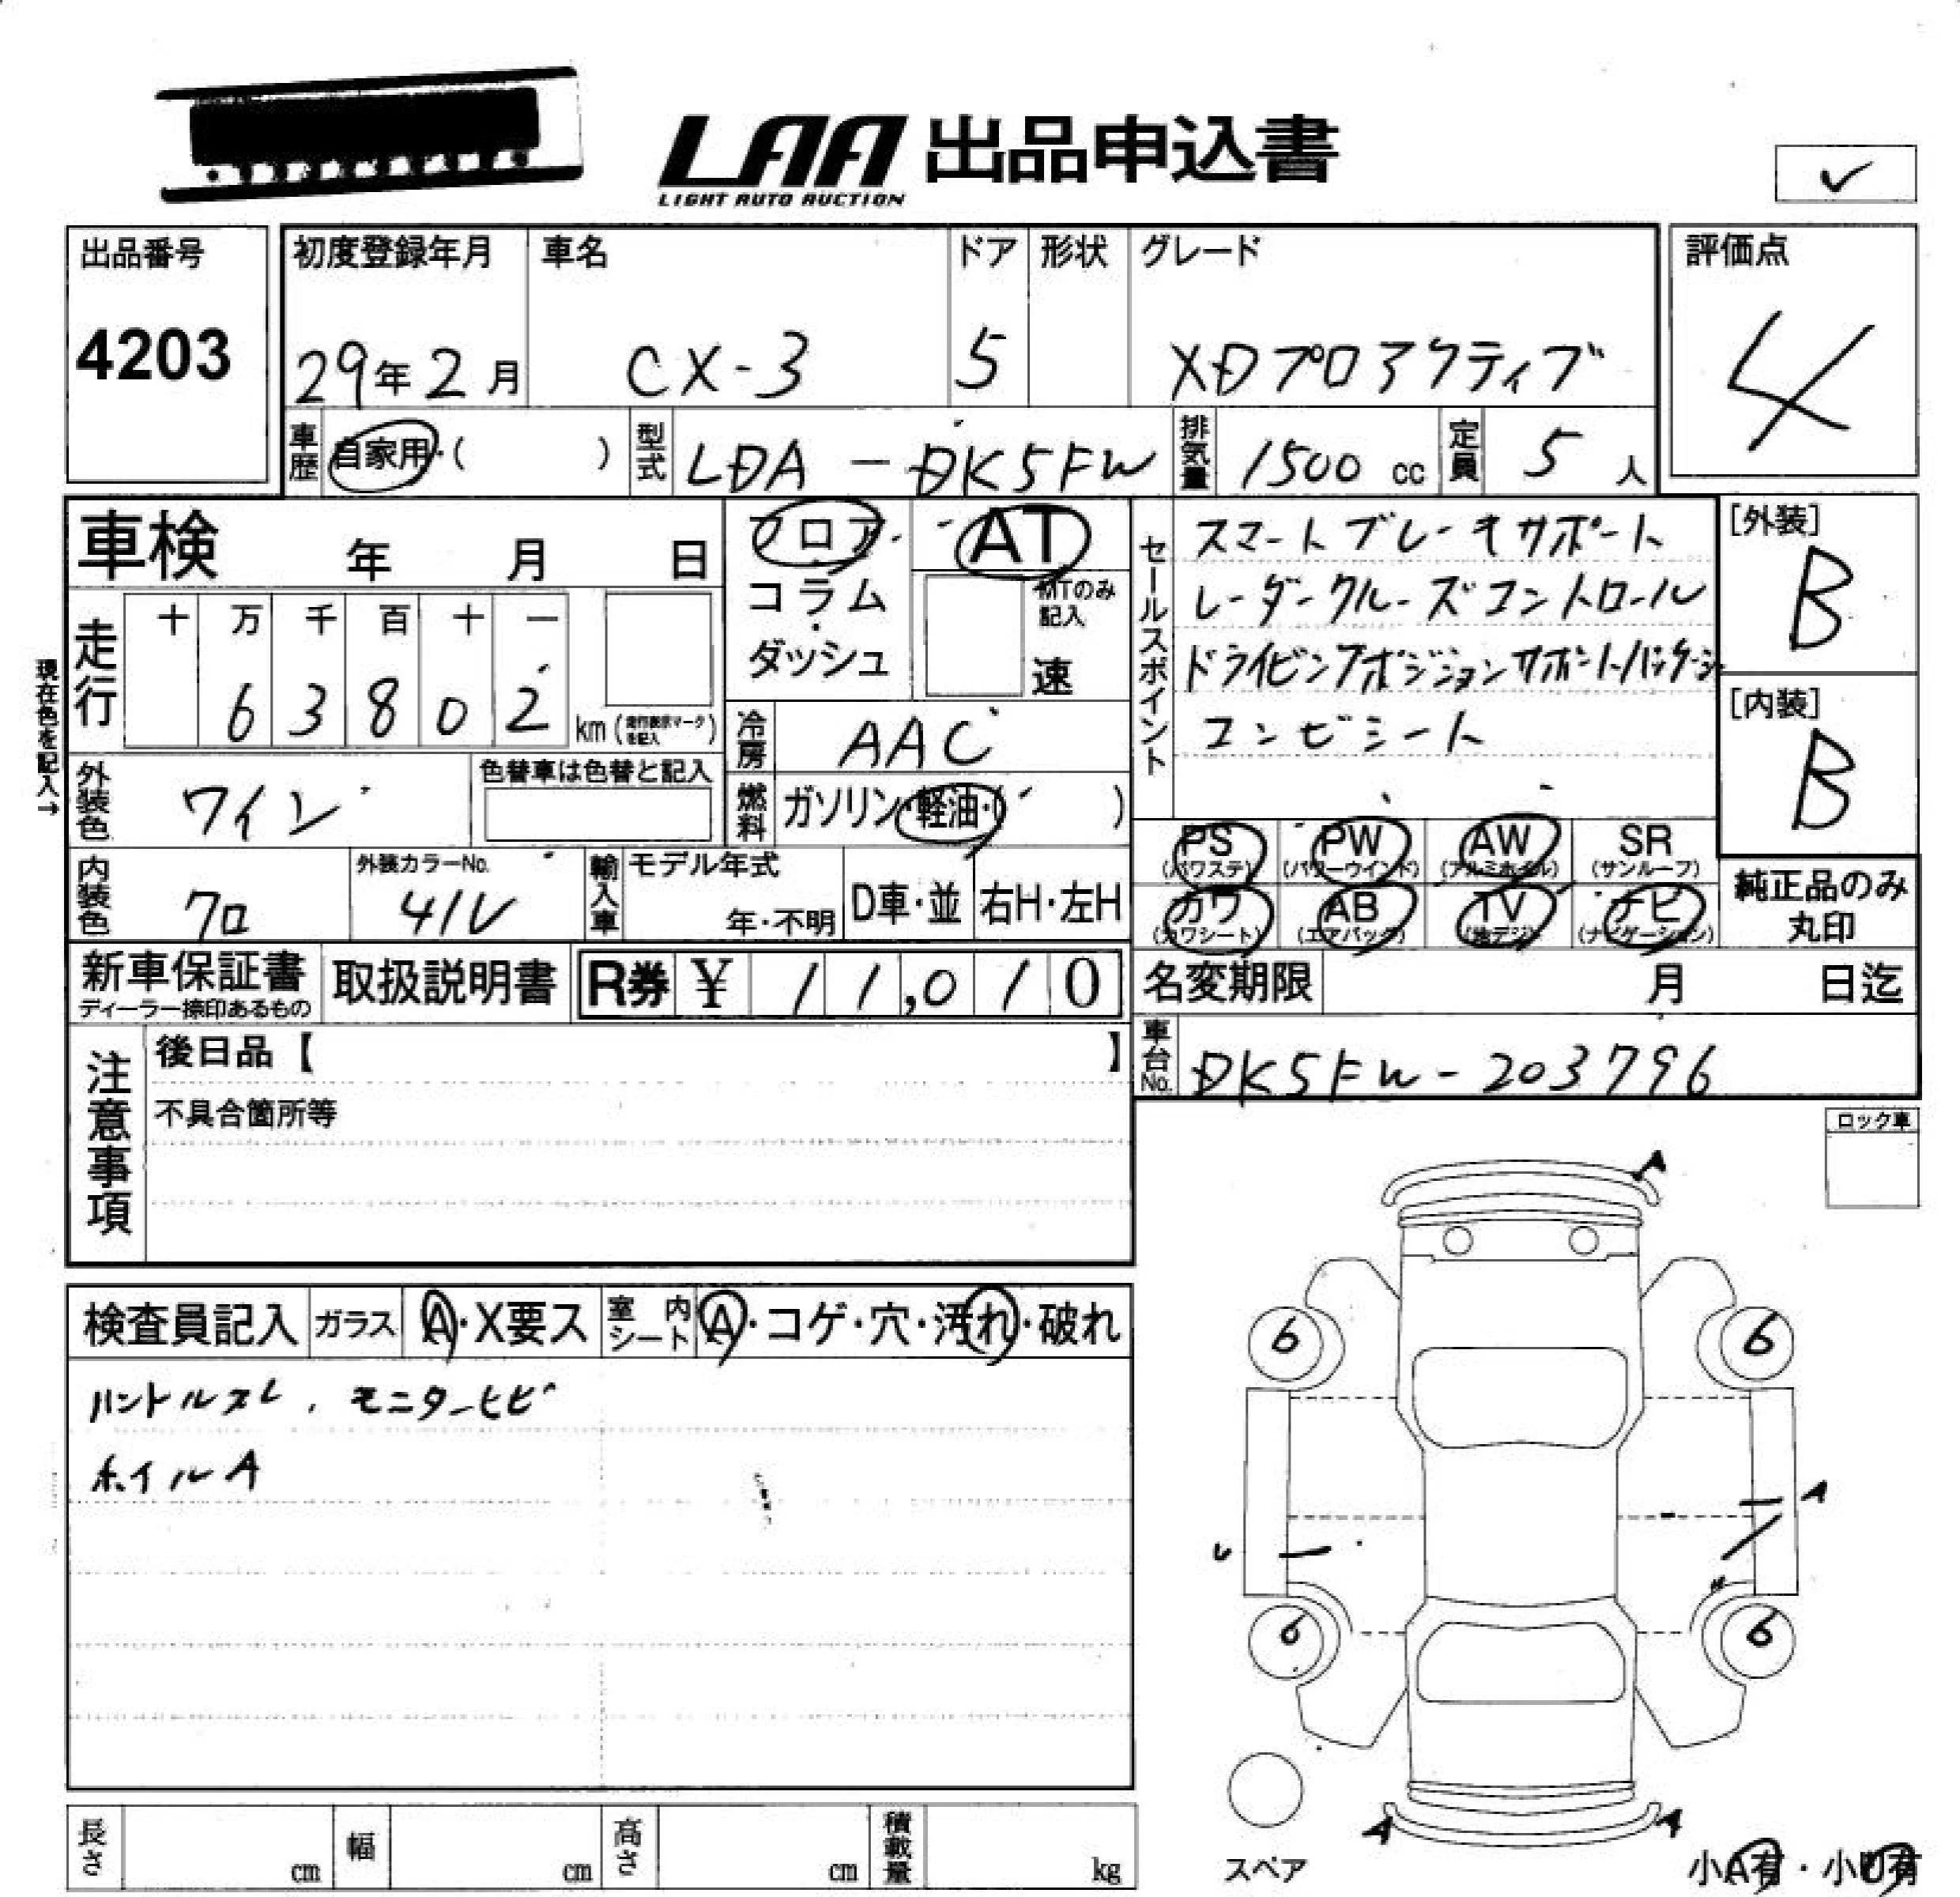 LAA 出品申込書
LIGHT AUTO AUCTION
✓
出品番号 初度登録年月 車名 ドア 形状 グレード 評価点
4203 29年2月 CX-3 5 XDプロアクティブ 4
車歴 自家用・( ) 型式 LDA-DK5FW 排気量 1500 cc 定員 5 人
車検 年 月 日 フロア・ AT
コラム・ MTのみ記入
ダッシュ 速
セールスポイント
スマートブレーキサポート
レーダークルーズコントロール
ドライビングポジションサポートパッケージ
コンビシート
[外装]
B
[内装]
B
現在色を記入→
走行 十 万 千 百 十 一
6 3 8 0 2 km (走行表示マークを記入)
冷房 AAC
外装色 ワイン 色替車は色替と記入
燃料 ガソリン・軽油・( )
PS (パワステ) PW (パワーウインド) AW (アルミホイル) SR (サンルーフ)
カワ (カワシート) AB (エアバック) TV (地デジ) ナビ (ナビゲーション)
純正品のみ
丸印
内装色 クロ 外装カラーNo. 41V 輸入車 モデル年式 年・不明 D車・並 右H・左H
新車保証書 取扱説明書 R券 ¥ 11,010 名変期限 月 日迄
ディーラー捺印あるもの
車台No. DK5FW-203796
注意事項
後日品【 】
不具合箇所等
ロック車
検査員記入 ガラス A・X要ス 室内シート A・コゲ・穴・汚れ・破れ
ハンドルスレ、モニターヒビ
ホイルA
A
6 6
A
U
6 6
A A
スペア
小A有・小U有
長さ cm 幅 cm 高さ cm 積載量 kg